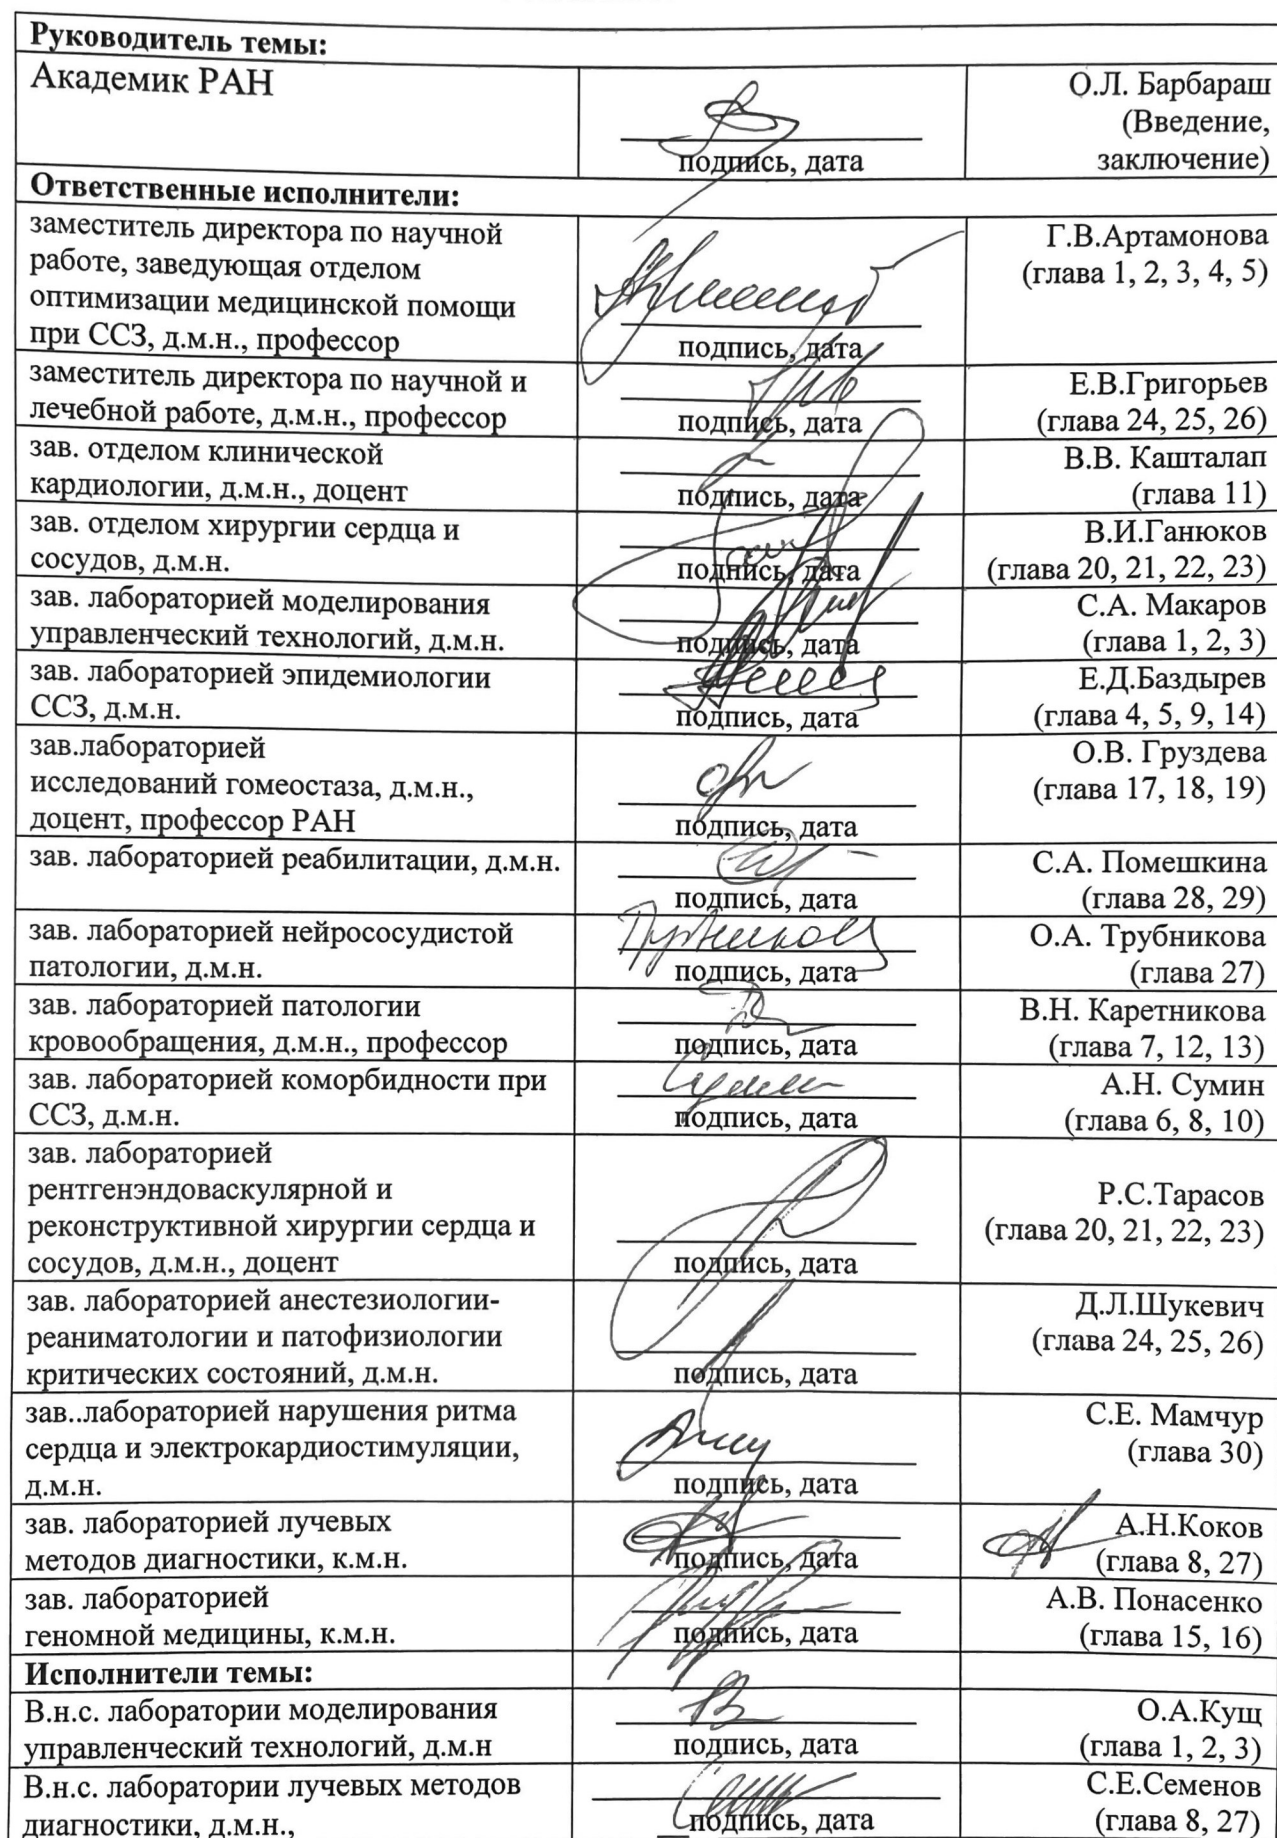 Руководитель темы:
Академик РАН
подпись, дата
О.Л. Барбараш
(Введение,
заключение)
Ответственные исполнители:
заместитель директора по научной
работе, заведующая отделом
оптимизации медицинской помощи
при ССЗ, д.м.н., профессор
подпись, дата
Г.В.Артамонова
(глава 1, 2, 3, 4, 5)
заместитель директора по научной и
лечебной работе, д.м.н., профессор
подпись, дата
Е.В.Григорьев
(глава 24, 25, 26)
зав. отделом клинической
кардиологии, д.м.н., доцент
подпись, дата
В.В. Кашталап
(глава 11)
зав. отделом хирургии сердца и
сосудов, д.м.н.
подпись, дата
В.И.Ганюков
(глава 20, 21, 22, 23)
зав. лабораторией моделирования
управленческий технологий, д.м.н.
подпись, дата
С.А. Макаров
(глава 1, 2, 3)
зав. лабораторией эпидемиологии
ССЗ, д.м.н.
подпись, дата
Е.Д.Баздырев
(глава 4, 5, 9, 14)
зав.лабораторией
исследований гомеостаза, д.м.н.,
доцент, профессор РАН
подпись, дата
О.В. Груздева
(глава 17, 18, 19)
зав. лабораторией реабилитации, д.м.н.
подпись, дата
С.А. Помешкина
(глава 28, 29)
зав. лабораторией нейрососудистой
патологии, д.м.н.
подпись, дата
О.А. Трубникова
(глава 27)
зав. лабораторией патологии
кровообращения, д.м.н., профессор
подпись, дата
В.Н. Каретникова
(глава 7, 12, 13)
зав. лабораторией коморбидности при
ССЗ, д.м.н.
подпись, дата
А.Н. Сумин
(глава 6, 8, 10)
зав. лабораторией
рентгенэндоваскулярной и
реконструктивной хирургии сердца и
сосудов, д.м.н., доцент
подпись, дата
Р.С.Тарасов
(глава 20, 21, 22, 23)
зав. лабораторией анестезиологии-
реаниматологии и патофизиологии
критических состояний, д.м.н.
подпись, дата
Д.Л.Шукевич
(глава 24, 25, 26)
зав..лабораторией нарушения ритма
сердца и электрокардиостимуляции,
д.м.н.
подпись, дата
С.Е. Мамчур
(глава 30)
зав. лабораторией лучевых
методов диагностики, к.м.н.
подпись, дата
А.Н.Коков
(глава 8, 27)
зав. лабораторией
геномной медицины, к.м.н.
подпись, дата
А.В. Понасенко
(глава 15, 16)
Исполнители темы:
В.н.с. лаборатории моделирования
управленческий технологий, д.м.н
подпись, дата
О.А.Кущ
(глава 1, 2, 3)
В.н.с. лаборатории лучевых методов
диагностики, д.м.н.,
подпись, дата
С.Е.Семенов
(глава 8, 27)